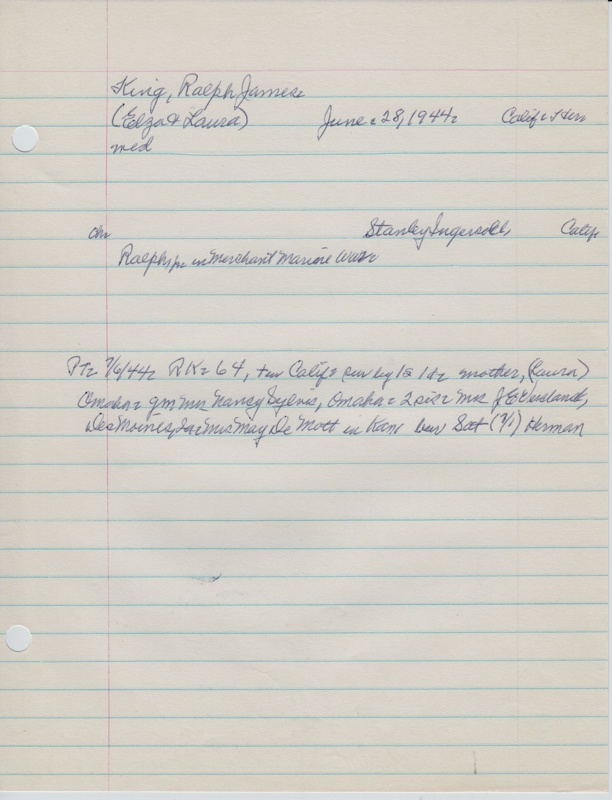 King, Ralph James
(Elza & Laura) June 28, 1944 Calif Her
med
ch Stanley Ingersoll, Calif
Ralph, jr in Merchant Marine
PT 7/6/44 RK 64, Calif sur by 1s 1d mother, (Laura)
Omaha gm Mrs Nancy Sylvis, Omaha 2 sis Mrs J E Cleveland,
Des Moines, Ia Mrs May De Mott in Kans bur Sat (7/1) Herman